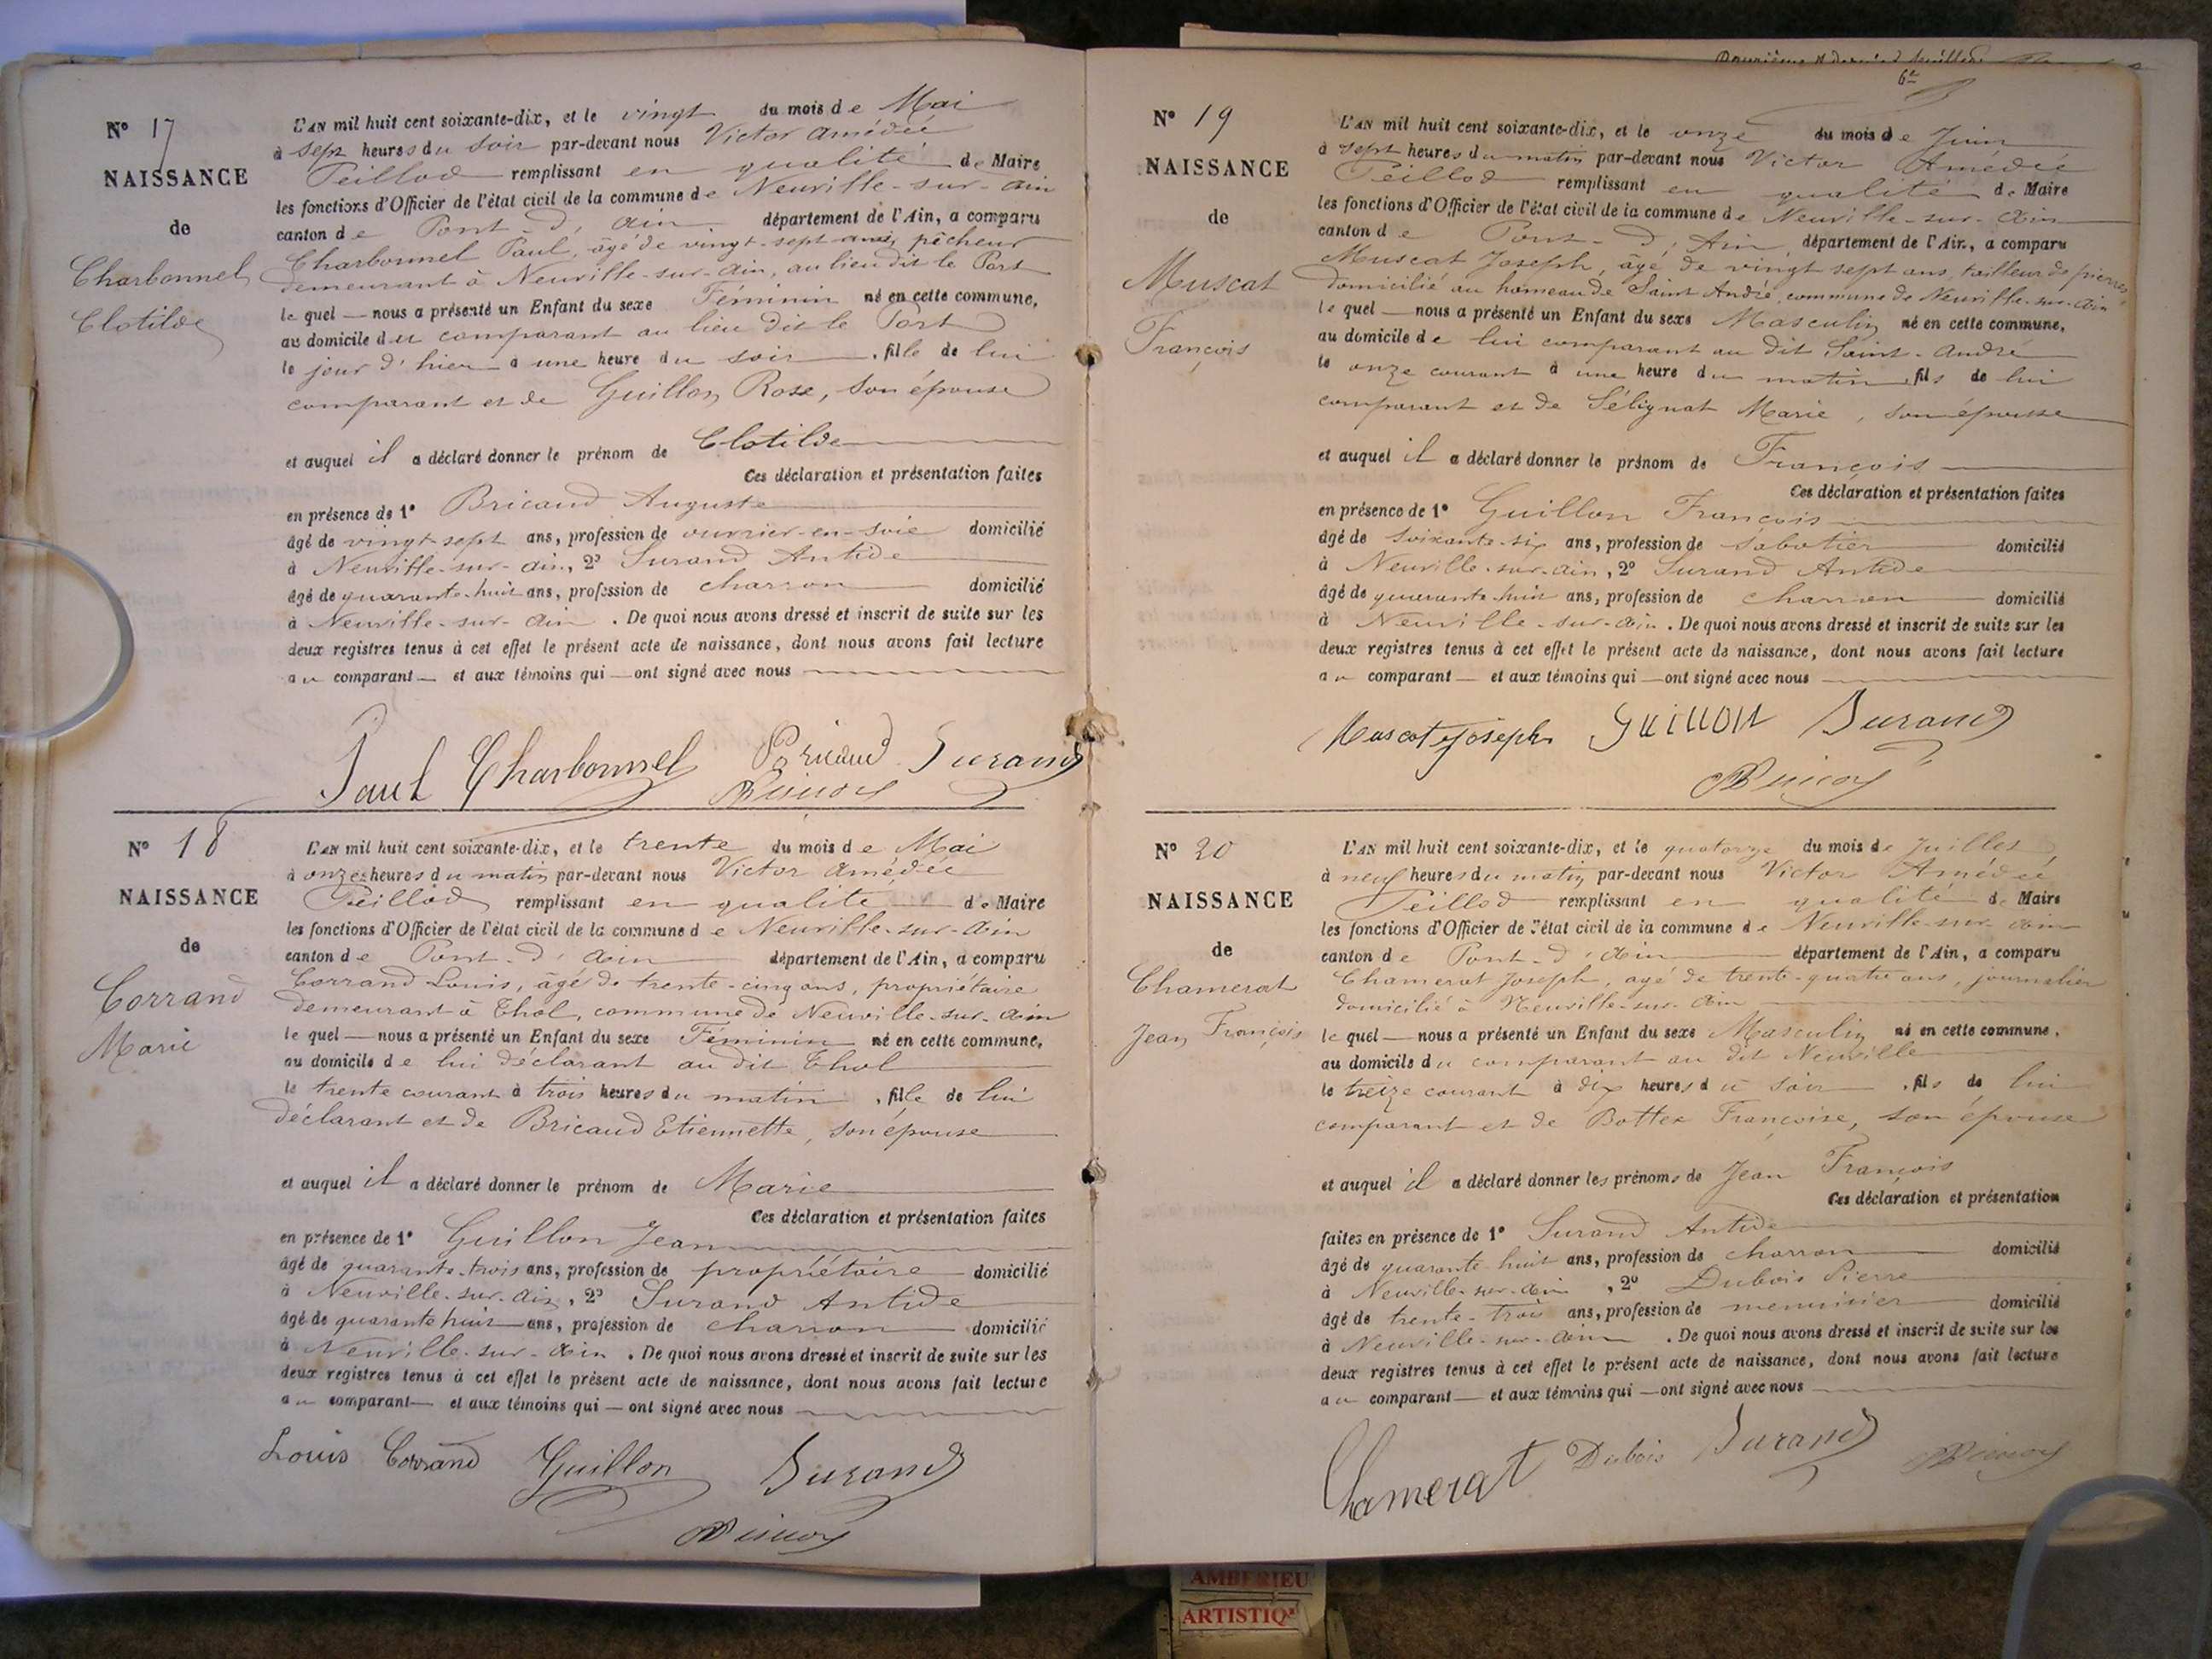 Nº 17
NAISSANCE
de
Charbonnel
Clotilde
L'AN mil huit cent soixante-dix, et le vingt du mois de Mai
à sept heures du soir par-devant nous Victor Amédée
Peillod remplissant en qualité de Maire
les fonctions d'Officier de l'état civil de la commune de Neuville-sur-Ain
canton de Pont-d'Ain département de l'Ain, a comparu
Charbonnel Paul, âgé de vingt-sept ans, pêcheur
demeurant à Neuville-sur-Ain, au lieu dit le Port
lequel nous a présenté un Enfant du sexe Féminin né en cette commune,
au domicile du comparant au lieu dit le Port
le jour d'hier à une heure du soir, fille de lui
comparant et de Guillon Rose, son épouse
et auquel il a déclaré donner le prénom de Clotilde
Ces déclaration et présentation faites
en présence de 1º Bricaud Auguste
âgé de vingt-sept ans, profession de ouvrier-en-soie domicilié
à Neuville-sur-Ain, 2º Surand Antide
âgé de quarante-huit ans, profession de charron domicilié
à Neuville-sur-Ain. De quoi nous avons dressé et inscrit de suite sur les
deux registres tenus à cet effet le présent acte de naissance, dont nous avons fait lecture
au comparant et aux témoins qui ont signé avec nous
Paul Charbonnel Bricaud Surand
Nº 18
NAISSANCE
de
Corrand
Marie
L'AN mil huit cent soixante-dix, et le trente du mois de Mai
à onze heures du matin par-devant nous Victor Amédée
Peillod remplissant en qualité de Maire
les fonctions d'Officier de l'état civil de la commune de Neuville-sur-Ain
canton de Pont-d'Ain département de l'Ain, a comparu
Corrand Louis, âgé de trente-cinq ans, propriétaire
demeurant à Thol, commune de Neuville-sur-Ain
lequel nous a présenté un Enfant du sexe Féminin né en cette commune,
au domicile de lui déclarant au dit Thol
le trente courant à trois heures du matin, fille de lui
déclarant et de Bricaud Etiennette, son épouse
et auquel il a déclaré donner le prénom de Marie
Ces déclaration et présentation faites
en présence de 1º Guillon Jean
âgé de quarante-trois ans, profession de propriétaire domicilié
à Neuville-sur-Ain, 2º Surand Antide
âgé de quarante huit ans, profession de charron domicilié
à Neuville-sur-Ain. De quoi nous avons dressé et inscrit de suite sur les
deux registres tenus à cet effet le présent acte de naissance, dont nous avons fait lecture
au comparant et aux témoins qui ont signé avec nous
Louis Corrand Guillon Surand
Nº 19
NAISSANCE
de
Muscat
François
L'AN mil huit cent soixante-dix, et le onze du mois de Juin
à sept heures du matin par-devant nous Victor Amédée
Peillod remplissant en qualité de Maire
les fonctions d'Officier de l'état civil de la commune de Neuville-sur-Ain
canton de Pont-d'Ain, département de l'Ain, a comparu
Muscat Joseph, âgé de vingt sept ans, tailleur de pierres
domicilié au hameau de Saint André, commune de Neuville-sur-Ain
lequel nous a présenté un Enfant du sexe Masculin né en cette commune,
au domicile de lui comparant au dit Saint-André
le onze courant à une heure du matin, fils de lui
comparant et de Sélignat Marie, son épouse
et auquel il a déclaré donner le prénom de François
Ces déclaration et présentation faites
en présence de 1º Guillon François
âgé de soixante-six ans, profession de sabotier domicilié
à Neuville-sur-Ain, 2º Surand Antide
âgé de quarante huit ans, profession de charron domicilié
à Neuville-sur-Ain. De quoi nous avons dressé et inscrit de suite sur les
deux registres tenus à cet effet le présent acte de naissance, dont nous avons fait lecture
au comparant et aux témoins qui ont signé avec nous
Muscat Joseph Guillon Surand
Nº 20
NAISSANCE
de
Chamerat
Jean François
L'AN mil huit cent soixante-dix, et le quatorze du mois de Juillet
à neuf heures du matin par-devant nous Victor Amédée
Peillod remplissant en qualité de Maire
les fonctions d'Officier de l'état civil de la commune de Neuville-sur-Ain
canton de Pont-d'Ain département de l'Ain, a comparu
Chamerat Joseph, agé de trente-quatre ans, journalier
domicilié à Neuville-sur-Ain
lequel nous a présenté un Enfant du sexe Masculin né en cette commune,
au domicile du comparant au dit Neuville
le treize courant à dix heures du soir, fils de lui
comparant et de Bottex Françoise, son épouse
et auquel il a déclaré donner les prénoms de Jean François
Ces déclaration et présentation
faites en présence de 1º Surand Antide
âgé de quarante huit ans, profession de charron domicilié
à Neuville-sur-Ain, 2º Dubois Pierre
âgé de trente-trois ans, profession de menuisier domicilié
à Neuville-sur-Ain. De quoi nous avons dressé et inscrit de suite sur les
deux registres tenus à cet effet le présent acte de naissance, dont nous avons fait lecture
au comparant et aux témoins qui ont signé avec nous
Chamerat Dubois Surand
AMBERIEU
ARTISTIQ